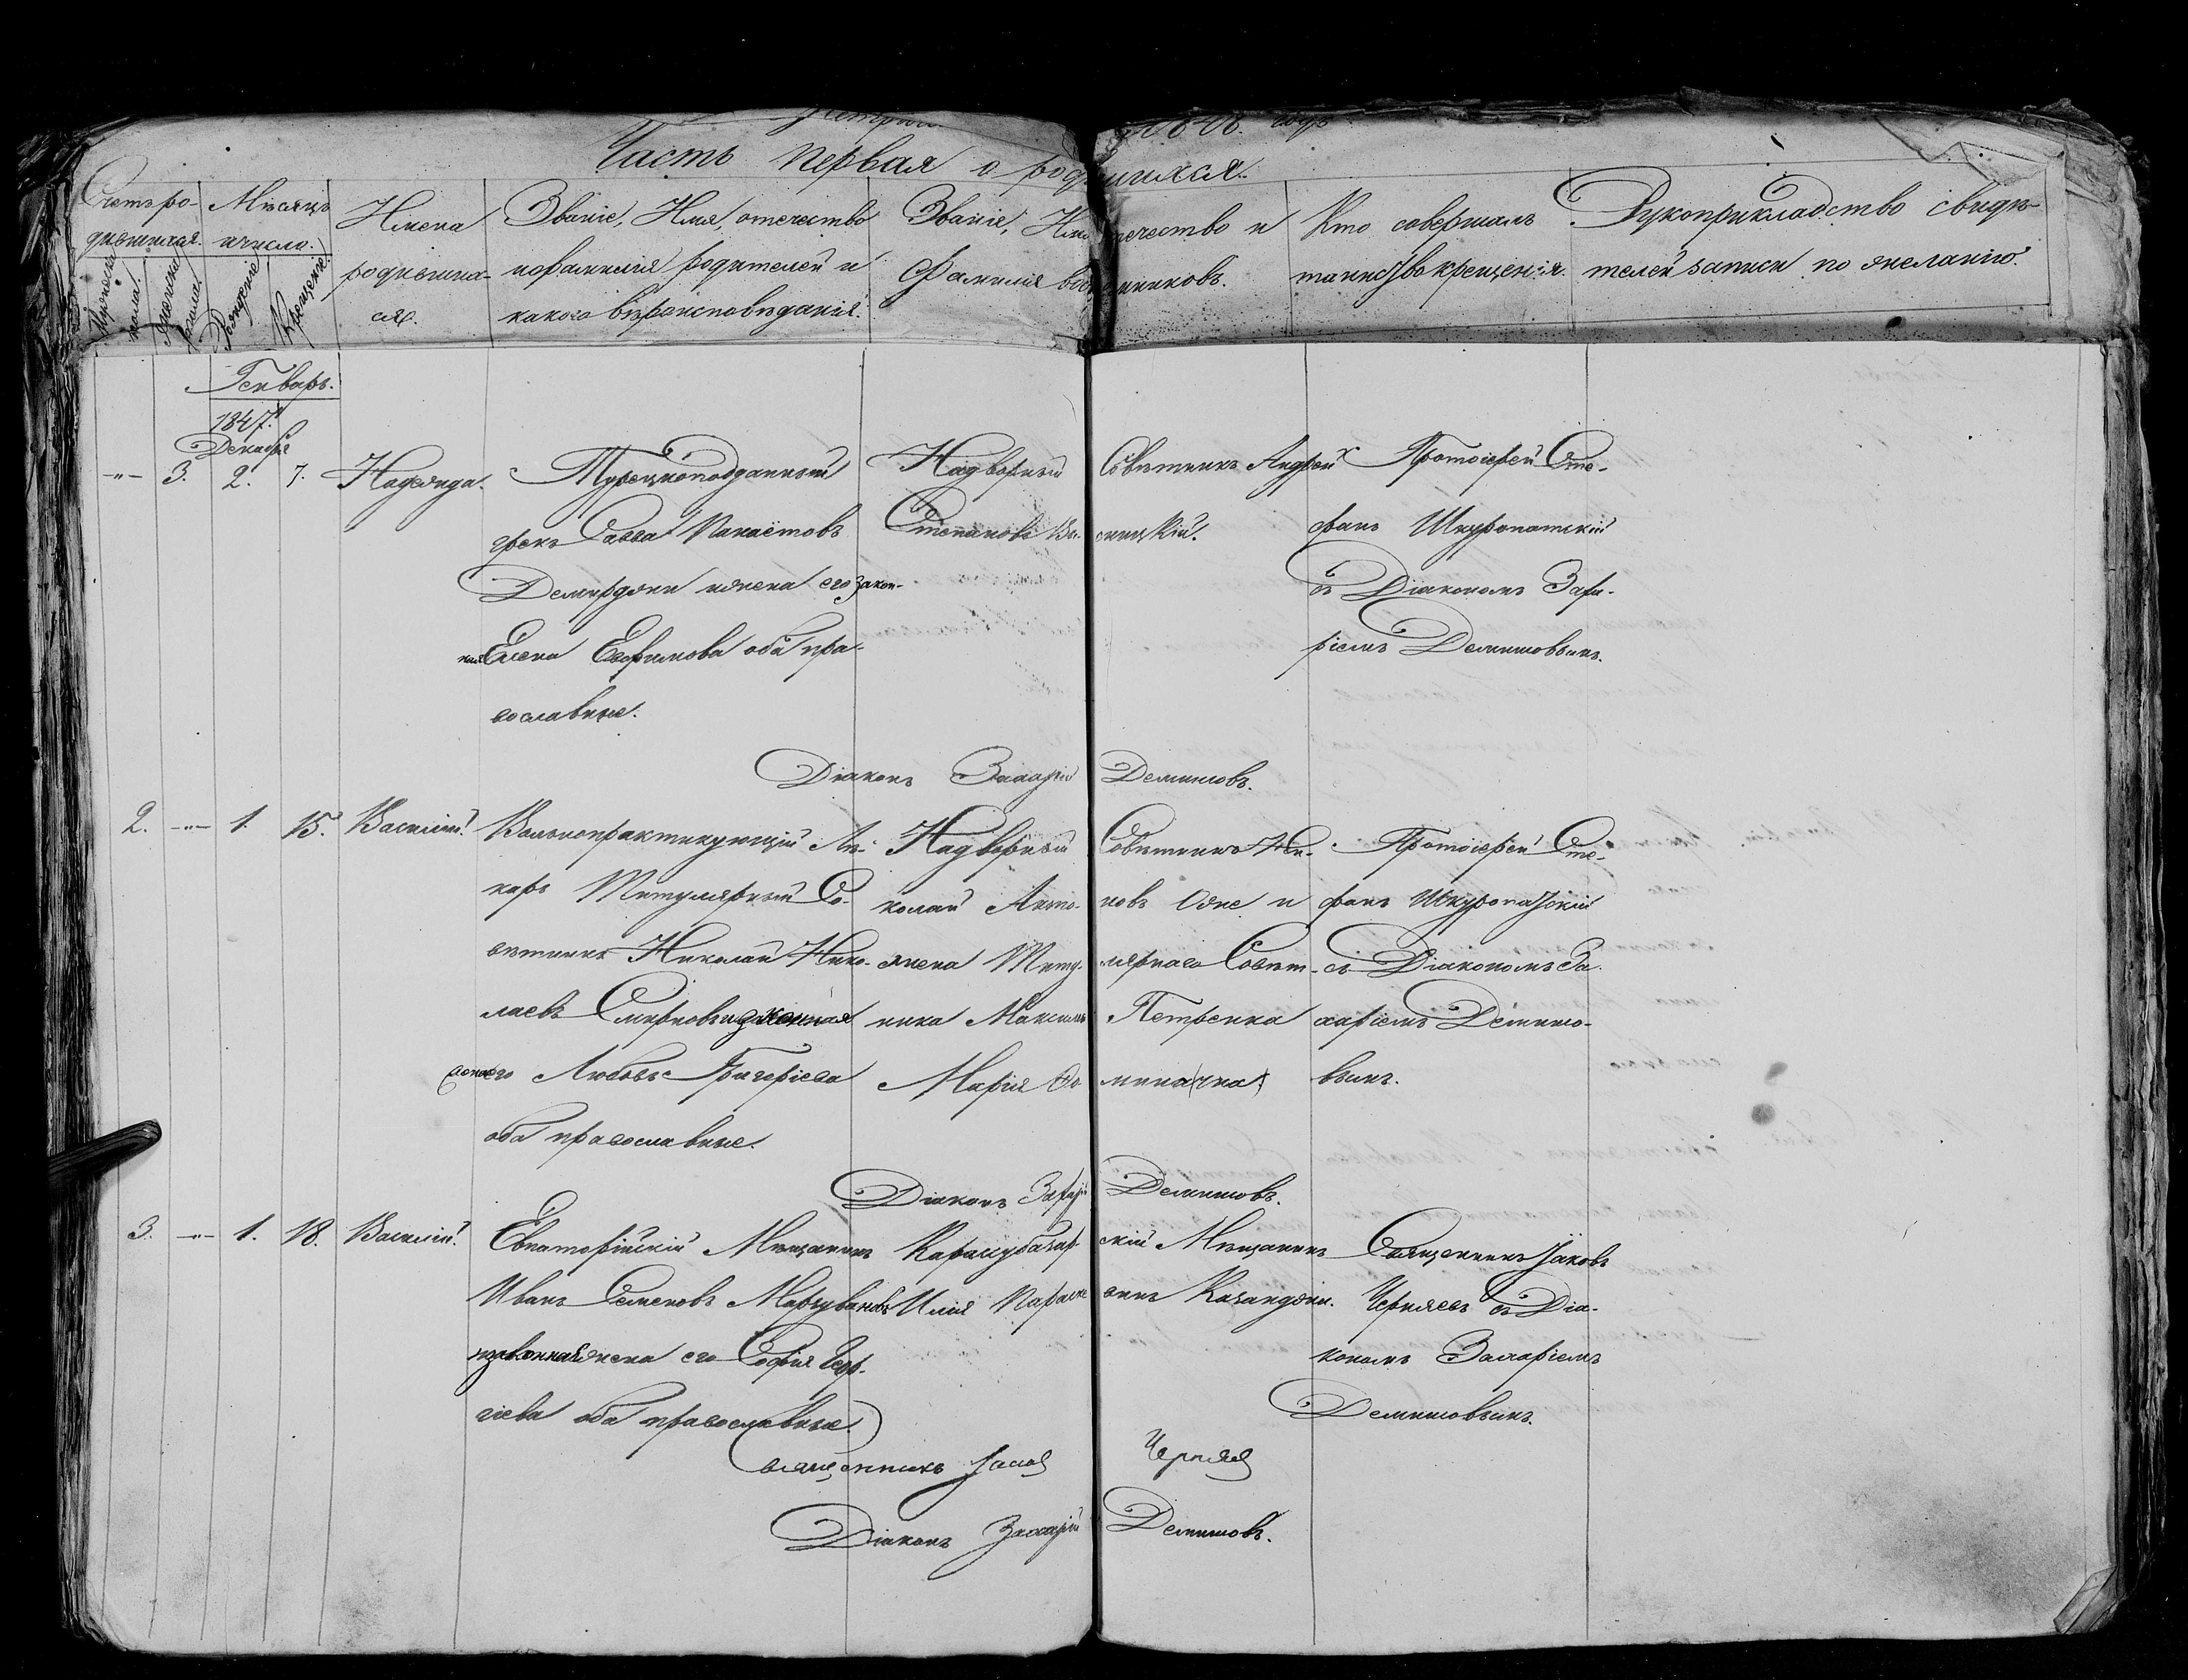 Часть первая о родившихся.
Счетъ ро-
дившихся.
Мѣсяцъ
и число.
Мужеска
пола.
Женска
пола.
Рожденіе
Крещеніе.
Имена
родивших-
ся.
Званіе, Имя, отечество
и фамилія родителей и
какого вѣроисповѣданія.
Званіе, Имя отечество и
Фамилія воспріемниковъ.
Кто совершалъ
таинство крещенія.
Рукоприкладство свидѣ-
телей записи по желанію.
Генварь.
1847.
Декабря
-"- 3. 2. 7. Надежда.
Турецкоподданный
грекъ Савва
Демерджи и жена его закон-
ная Елена Евфимова оба пра-
вославные.
Надворный Совѣтникъ Андрей
Степановъ
Протоіерей Сте-
фанъ Шкуропатскій
съ Діакономъ Заха-
ріемъ Демишовымъ.
Діаконъ Захарій Демишовъ.
2. -"- 1. 15. Василій.
Вольнопрактикующій Лѣ-
карь Титулярный Со-
вѣтникъ Николай Нико-
лаевъ Смирновъ и законная
жена его Любовь Григоріева
оба православные.
Надворный Совѣтникъ Ни-
колай Анто-новъ Оже и
жена Титу-лярнаго Совѣт-
ника Максима Петренка
Марія
Протоіерей Сте-
фанъ Шкуропатскій
съ Діакономъ За-
харіемъ Демишо-
вымъ.
Діаконъ Захарій Демишовъ.
3. -"- 1. 18. Василій.
Евпаторійскій Мѣщанинъ
Иванъ Семеновъ
и законная жена его Софія Геор-
гіева оба православные.
Карасубазар-скій Мѣщанинъ
Илія Казанджи.
Священникъ Іаковъ
Черняевъ съ Діа-
кономъ Захаріемъ
Демишовымъ.
Священникъ Іаковъ Черняевъ
Діаконъ Захарій Демишовъ.